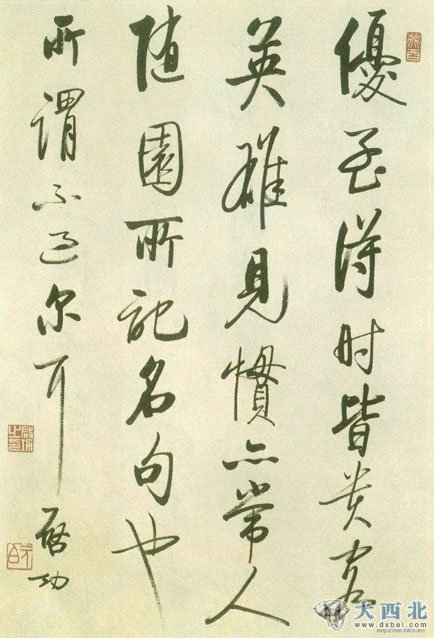 優孟得时皆贵客
英雄見慣亦常人
随園所記名句也
所謂不过尔耳
啓功
大西北
www.dxbei.com